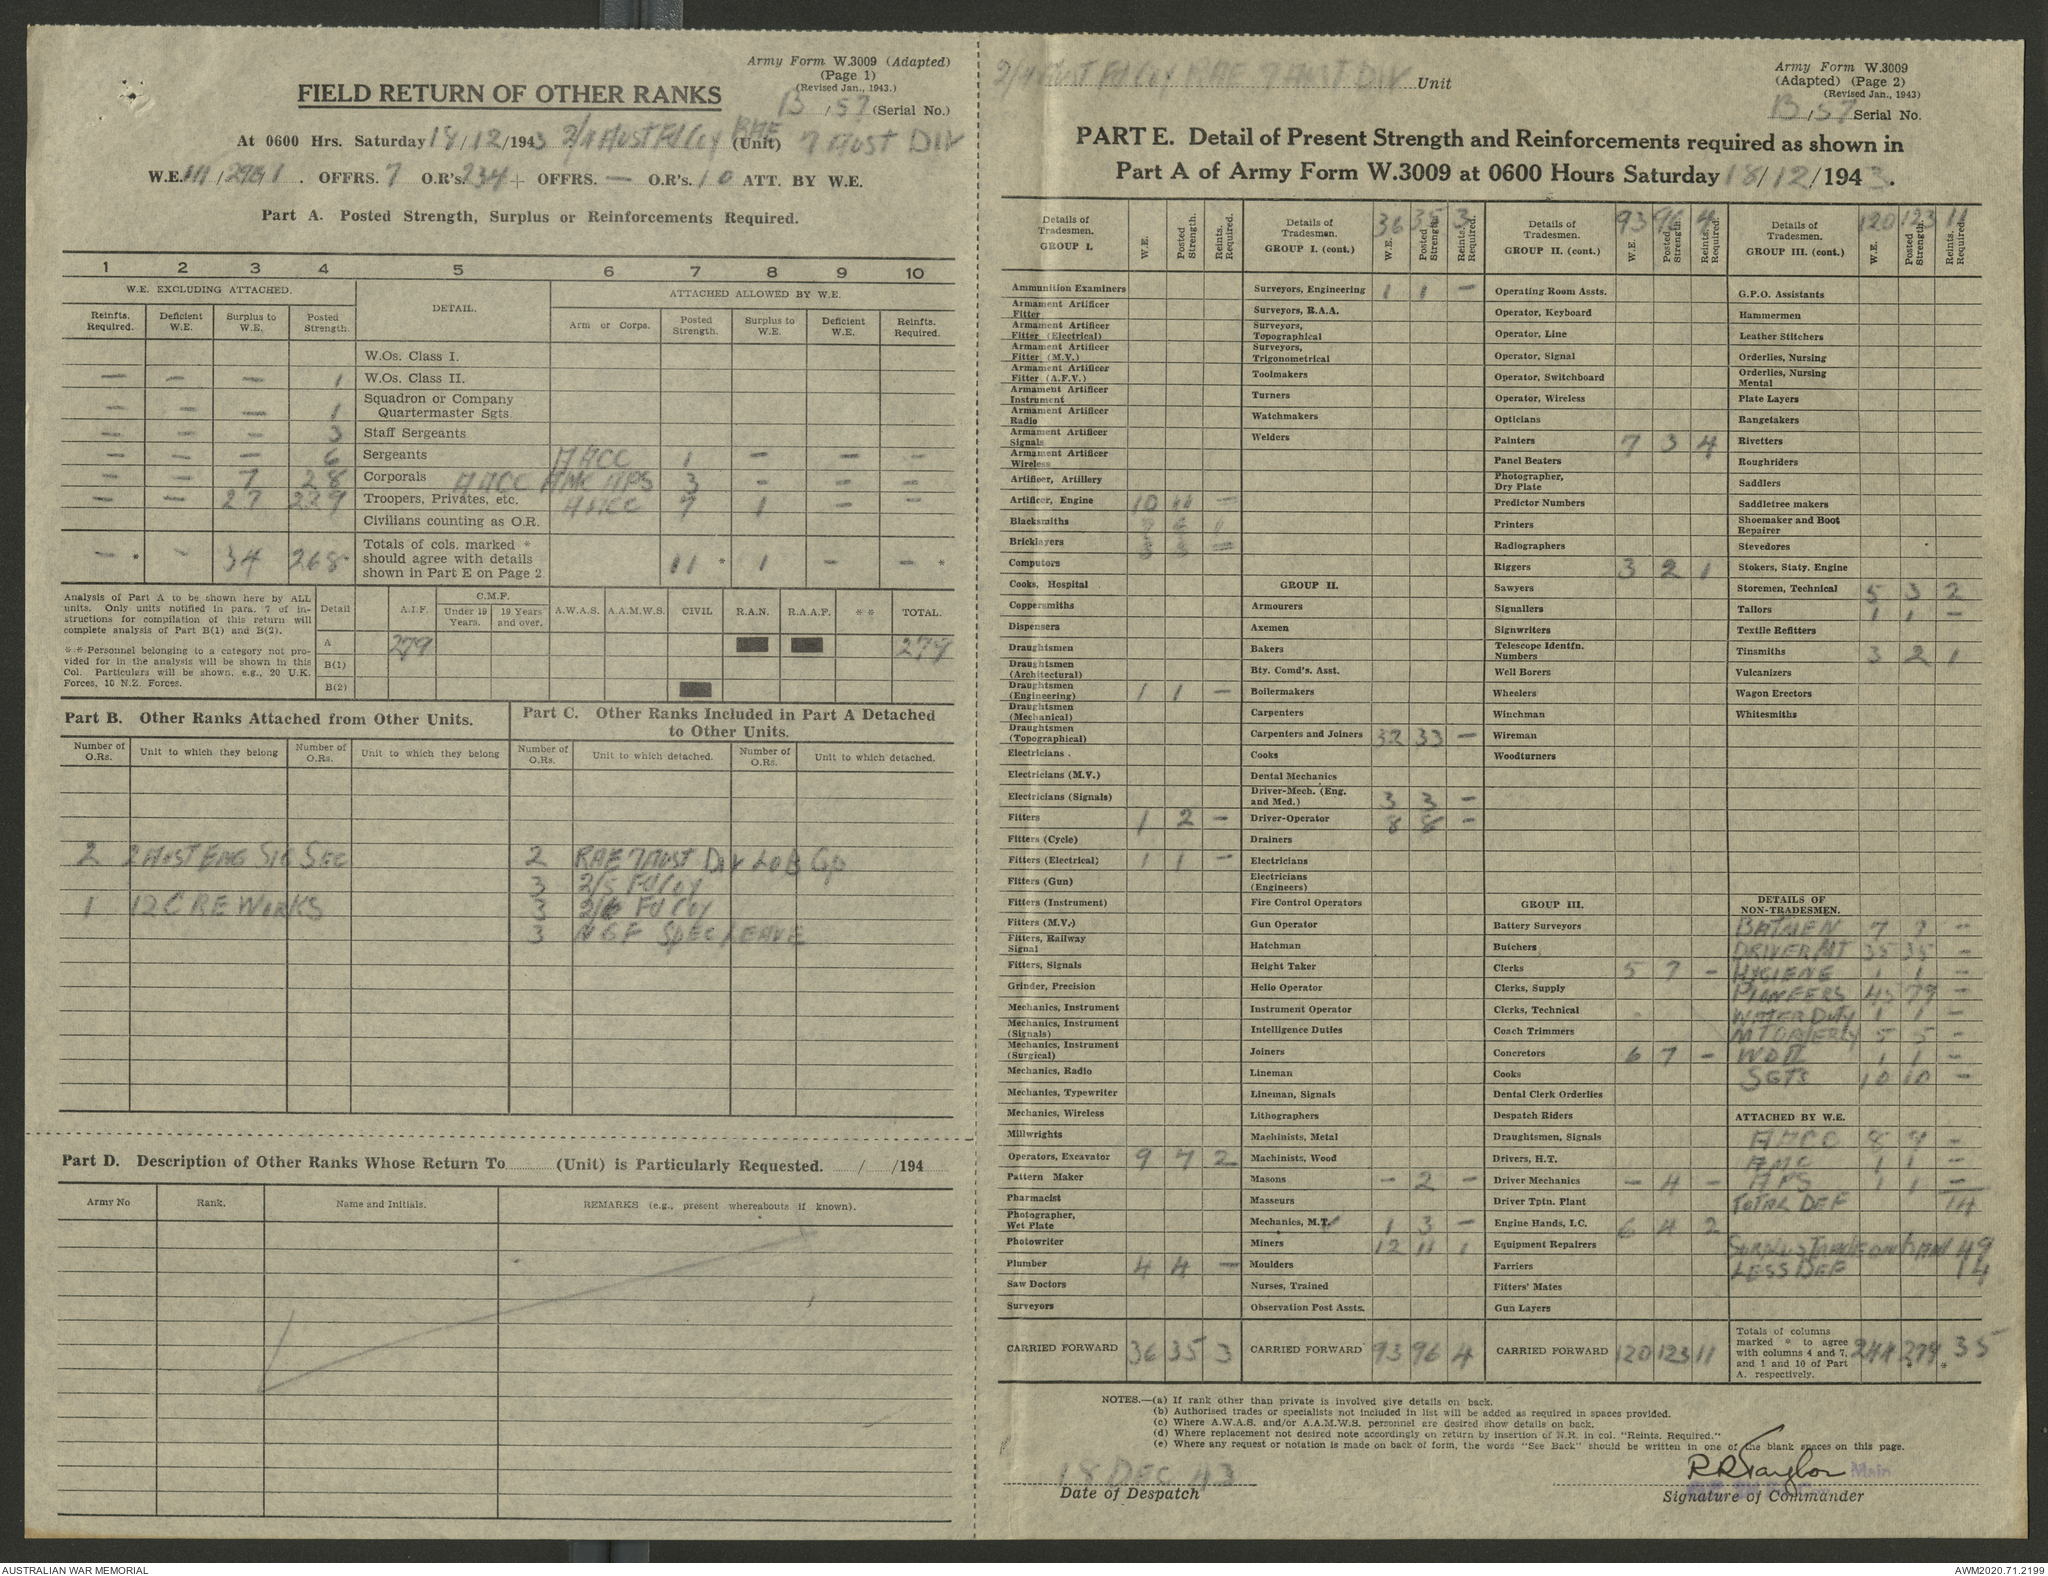 Army Form W.3009 (Adapted)
(Page 1)
(Revised Jan., 1943.)
FIELD RETURN OF OTHER RANKS
B/57 (Serial No.)
At 0600 Hrs. Saturday 18/12/1943 2/4 Aust Fd Coy RAE (Unit) 7 Aust Div
W.E. OFFRS. 7 O.R's. 234 + OFFRS. — O.R's. 10 ATT. BY W.E.
Part A. Posted Strength, Surplus or Reinforcements Required.
1 2 3 4 5 6 7 8 9 10
W.E. EXCLUDING ATTACHED. DETAIL. ATTACHED ALLOWED BY W.E.
Reinfts. Required. Deficient W.E. Surplus to W.E. Posted Strength. Arm or Corps. Posted Strength. Surplus to W.E. Deficient W.E. Reinfts. Required.
W.Os. Class I.
— — — 1 W.Os. Class II.
— — — 1 Squadron or Company Quartermaster Sgts.
— — — 3 Staff Sergeants
— — — 6 Sergeants AACC 1 — — —
— — 7 28 Corporals AACC AMC APS 3 — — —
— — 27 229 Troopers, Privates, etc. AACC 7 1 — —
Civilians counting as O.R.
— * — 34 268 Totals of cols. marked * should agree with details shown in Part E on Page 2 11 * 1 — — *
Analysis of Part A to be shown here by ALL units. Only units notified in para. 7 of instructions for compilation of this return will complete analysis of Part B(1) and B(2).
** Personnel belonging to a category not provided for in the analysis will be shown in this Col. Particulars will be shown, e.g., 20 U.K. Forces, 10 N.Z. Forces.
Detail A.I.F. C.M.F. Under 19 Years. 19 Years and over. A.W.A.S. A.A.M.W.S. CIVIL R.A.N. R.A.A.F. ** TOTAL.
A 279 279
B(1)
B(2)
Part B. Other Ranks Attached from Other Units.
Number of O.Rs. Unit to which they belong Number of O.Rs. Unit to which they belong
2 2 Aust Eng Sig Sec
1 12 CRE Works
Part C. Other Ranks Included in Part A Detached to Other Units.
Number of O.Rs. Unit to which detached. Number of O.Rs. Unit to which detached.
2 RAE 7 Aust Div LOB Gp
3 2/5 Fd Coy
3 2/6 Fd Coy
3 NGF Spec Leave
Part D. Description of Other Ranks Whose Return To (Unit) is Particularly Requested. / /194
Army No Rank. Name and Initials. REMARKS (e.g., present whereabouts if known).
2/4 Aust Fd Coy RAE 7 Aust Div Unit
Army Form W.3009
(Adapted) (Page 2)
(Revised Jan., 1943)
B/57 Serial No.
PART E. Detail of Present Strength and Reinforcements required as shown in
Part A of Army Form W.3009 at 0600 Hours Saturday 18/12/1943.
Details of Tradesmen. GROUP I. W.E. Posted Strength. Reints. Required.
Ammunition Examiners
Armament Artificer Fitter
Armament Artificer Fitter (Electrical)
Armament Artificer Fitter (M.V.)
Armament Artificer Fitter (A.F.V.)
Armament Artificer Instrument
Armament Artificer Radio
Armament Artificer Signals
Armament Artificer Wireless
Artificer, Artillery
Artificer, Engine 10 11 —
Blacksmiths
Bricklayers 3 3 —
Computors
Cooks, Hospital
Coppersmiths
Dispensers
Draughtsmen
Draughtsmen (Architectural)
Draughtsmen (Engineering) 1 1 —
Draughtsmen (Mechanical)
Draughtsmen (Topographical)
Electricians
Electricians (M.V.)
Electricians (Signals)
Fitters 1 2 —
Fitters (Cycle)
Fitters (Electrical) 1 1 —
Fitters (Gun)
Fitters (Instrument)
Fitters (M.V.)
Fitters, Railway Signal
Fitters, Signals
Grinder, Precision
Mechanics, Instrument
Mechanics, Instrument (Signals)
Mechanics, Instrument (Surgical)
Mechanics, Radio
Mechanics, Typewriter
Mechanics, Wireless
Millwrights
Operators, Excavator 9 7 2
Pattern Maker
Pharmacist
Photographer, Wet Plate
Photowriter
Plumber 4 4 —
Saw Doctors
Surveyors
CARRIED FORWARD 36 35 3
Details of Tradesmen. GROUP I. (cont.) 36 W.E. 35 Posted Strength. 3 Reints. Required.
Surveyors, Engineering 1 1 —
Surveyors, R.A.A.
Surveyors, Topographical
Surveyors, Trigonometrical
Toolmakers
Turners
Watchmakers
Welders
GROUP II.
Armourers
Axemen
Bakers
Bty. Comd's. Asst.
Boilermakers
Carpenters
Carpenters and Joiners 32 33 —
Cooks
Dental Mechanics
Driver-Mech. (Eng. and Med.) 3 3 —
Driver-Operator 8 8 —
Drainers
Electricians
Electricians (Engineers)
Fire Control Operators
Gun Operator
Hatchman
Height Taker
Helio Operator
Instrument Operator
Intelligence Duties
Joiners
Lineman
Lineman, Signals
Lithographers
Machinists, Metal
Machinists, Wood
Masons — 2 —
Masseurs
Mechanics, M.T. 1 3 —
Miners 12 11 1
Moulders
Nurses, Trained
Observation Post Assts.
CARRIED FORWARD 93 96 4
Details of Tradesmen. GROUP II. (cont.) 93 W.E. 96 Posted Strength. 4 Reints. Required.
Operating Room Assts.
Operator, Keyboard
Operator, Line
Operator, Signal
Operator, Switchboard
Operator, Wireless
Opticians
Painters 7 3 4
Panel Beaters
Photographer, Dry Plate
Predictor Numbers
Printers
Radiographers
Riggers 3 2 1
Sawyers
Signallers
Signwriters
Telescope Identfn. Numbers
Well Borers
Wheelers
Winchman
Wireman
Woodturners
GROUP III.
Battery Surveyors
Butchers
Clerks 5 7 —
Clerks, Supply
Clerks, Technical
Coach Trimmers
Concretors 6 7 —
Cooks
Dental Clerk Orderlies
Despatch Riders
Draughtsmen, Signals
Drivers, H.T.
Driver Mechanics — 4 —
Driver Tptn. Plant
Engine Hands, I.C. 6 4 2
Equipment Repairers
Farriers
Fitters' Mates
Gun Layers
CARRIED FORWARD 120 123 11
Details of Tradesmen. GROUP III. (cont.) 120 W.E. 123 Posted Strength. 11 Reints. Required.
G.P.O. Assistants
Hammermen
Leather Stitchers
Orderlies, Nursing
Orderlies, Nursing Mental
Plate Layers
Rangetakers
Rivetters
Roughriders
Saddlers
Saddletree makers
Shoemaker and Boot Repairer
Stevedores
Stokers, Staty. Engine
Storemen, Technical 5 3 2
Tailors 1 1 —
Textile Refitters
Tinsmiths 3 2 1
Vulcanizers
Wagon Erectors
Whitesmiths
DETAILS OF NON-TRADESMEN.
Batmen 7 7 —
Driver MT 35 35 —
Hygiene 1 1 —
Pioneers 45 79 —
Water Duty 1 1 —
MT Orderly 5 5 —
WO II 1 1 —
Sgts 10 10 —
ATTACHED BY W.E.
AACC 8 9 —
AMC 1 1 —
APS 1 1 —
Total Def 14
Surplus Trade on 49
Less Def 14
Totals of columns marked * to agree with columns 4 and 7, and 1 and 10 of Part A. respectively. 244 279 * 35
NOTES.—(a) If rank other than private is involved give details on back.
(b) Authorised trades or specialists not included in list will be added as required in spaces provided.
(c) Where A.W.A.S. and/or A.A.M.W.S. personnel are desired show details on back.
(d) Where replacement not desired note accordingly on return by insertion of N.R. in col. "Reints. Required."
(e) Where any request or notation is made on back of form, the words "See Back" should be written in one of the blank spaces on this page.
18 Dec 43
Date of Despatch
RR Taylor
Signature of Commander
AUSTRALIAN WAR MEMORIAL
AWM2020.71.2199